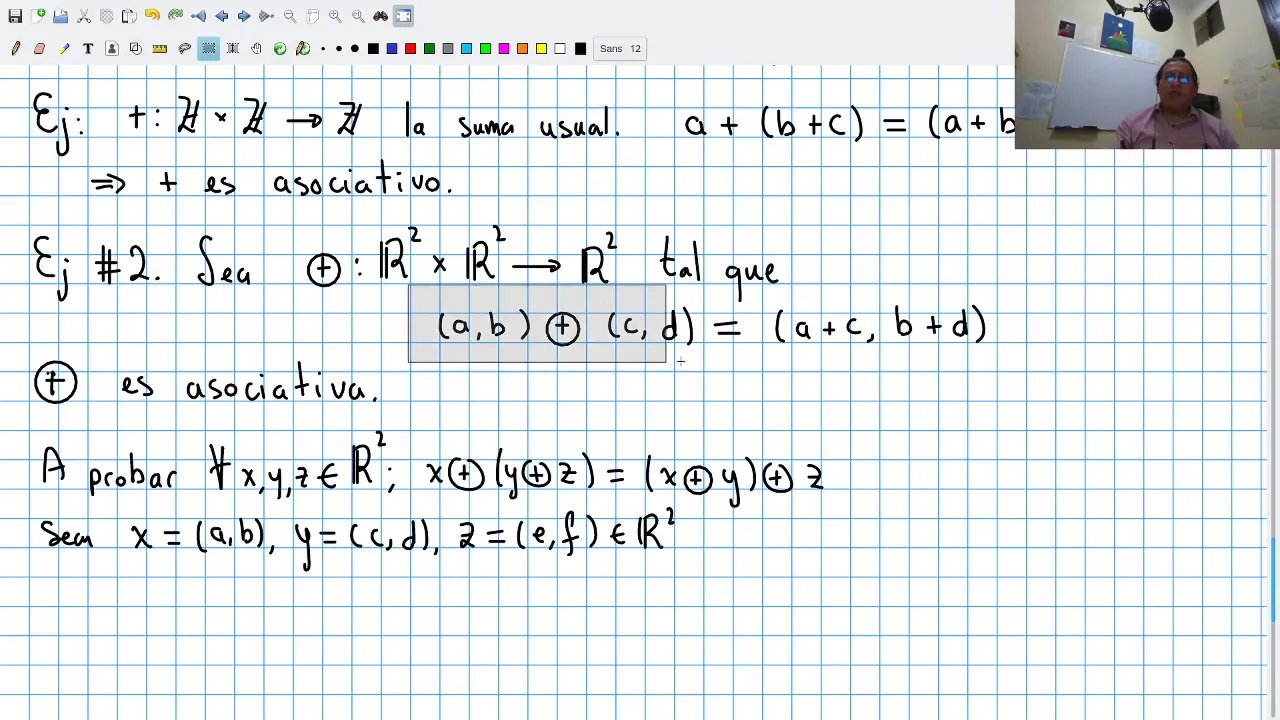 Sans 12
Ej: +: ℤ × ℤ → ℤ la suma usual. a + (b+c) = (a + b
⇒ + es asociativo.
Ej #2. Sea ⊕: ℝ² × ℝ² → ℝ² tal que
(a,b) ⊕ (c,d) = (a+c, b+d)
⊕ es asociativa.
A probar ∀ x,y,z ∈ ℝ²; x⊕(y⊕z) = (x⊕y)⊕z
Sean x = (a,b), y = (c,d), z = (e,f) ∈ ℝ²